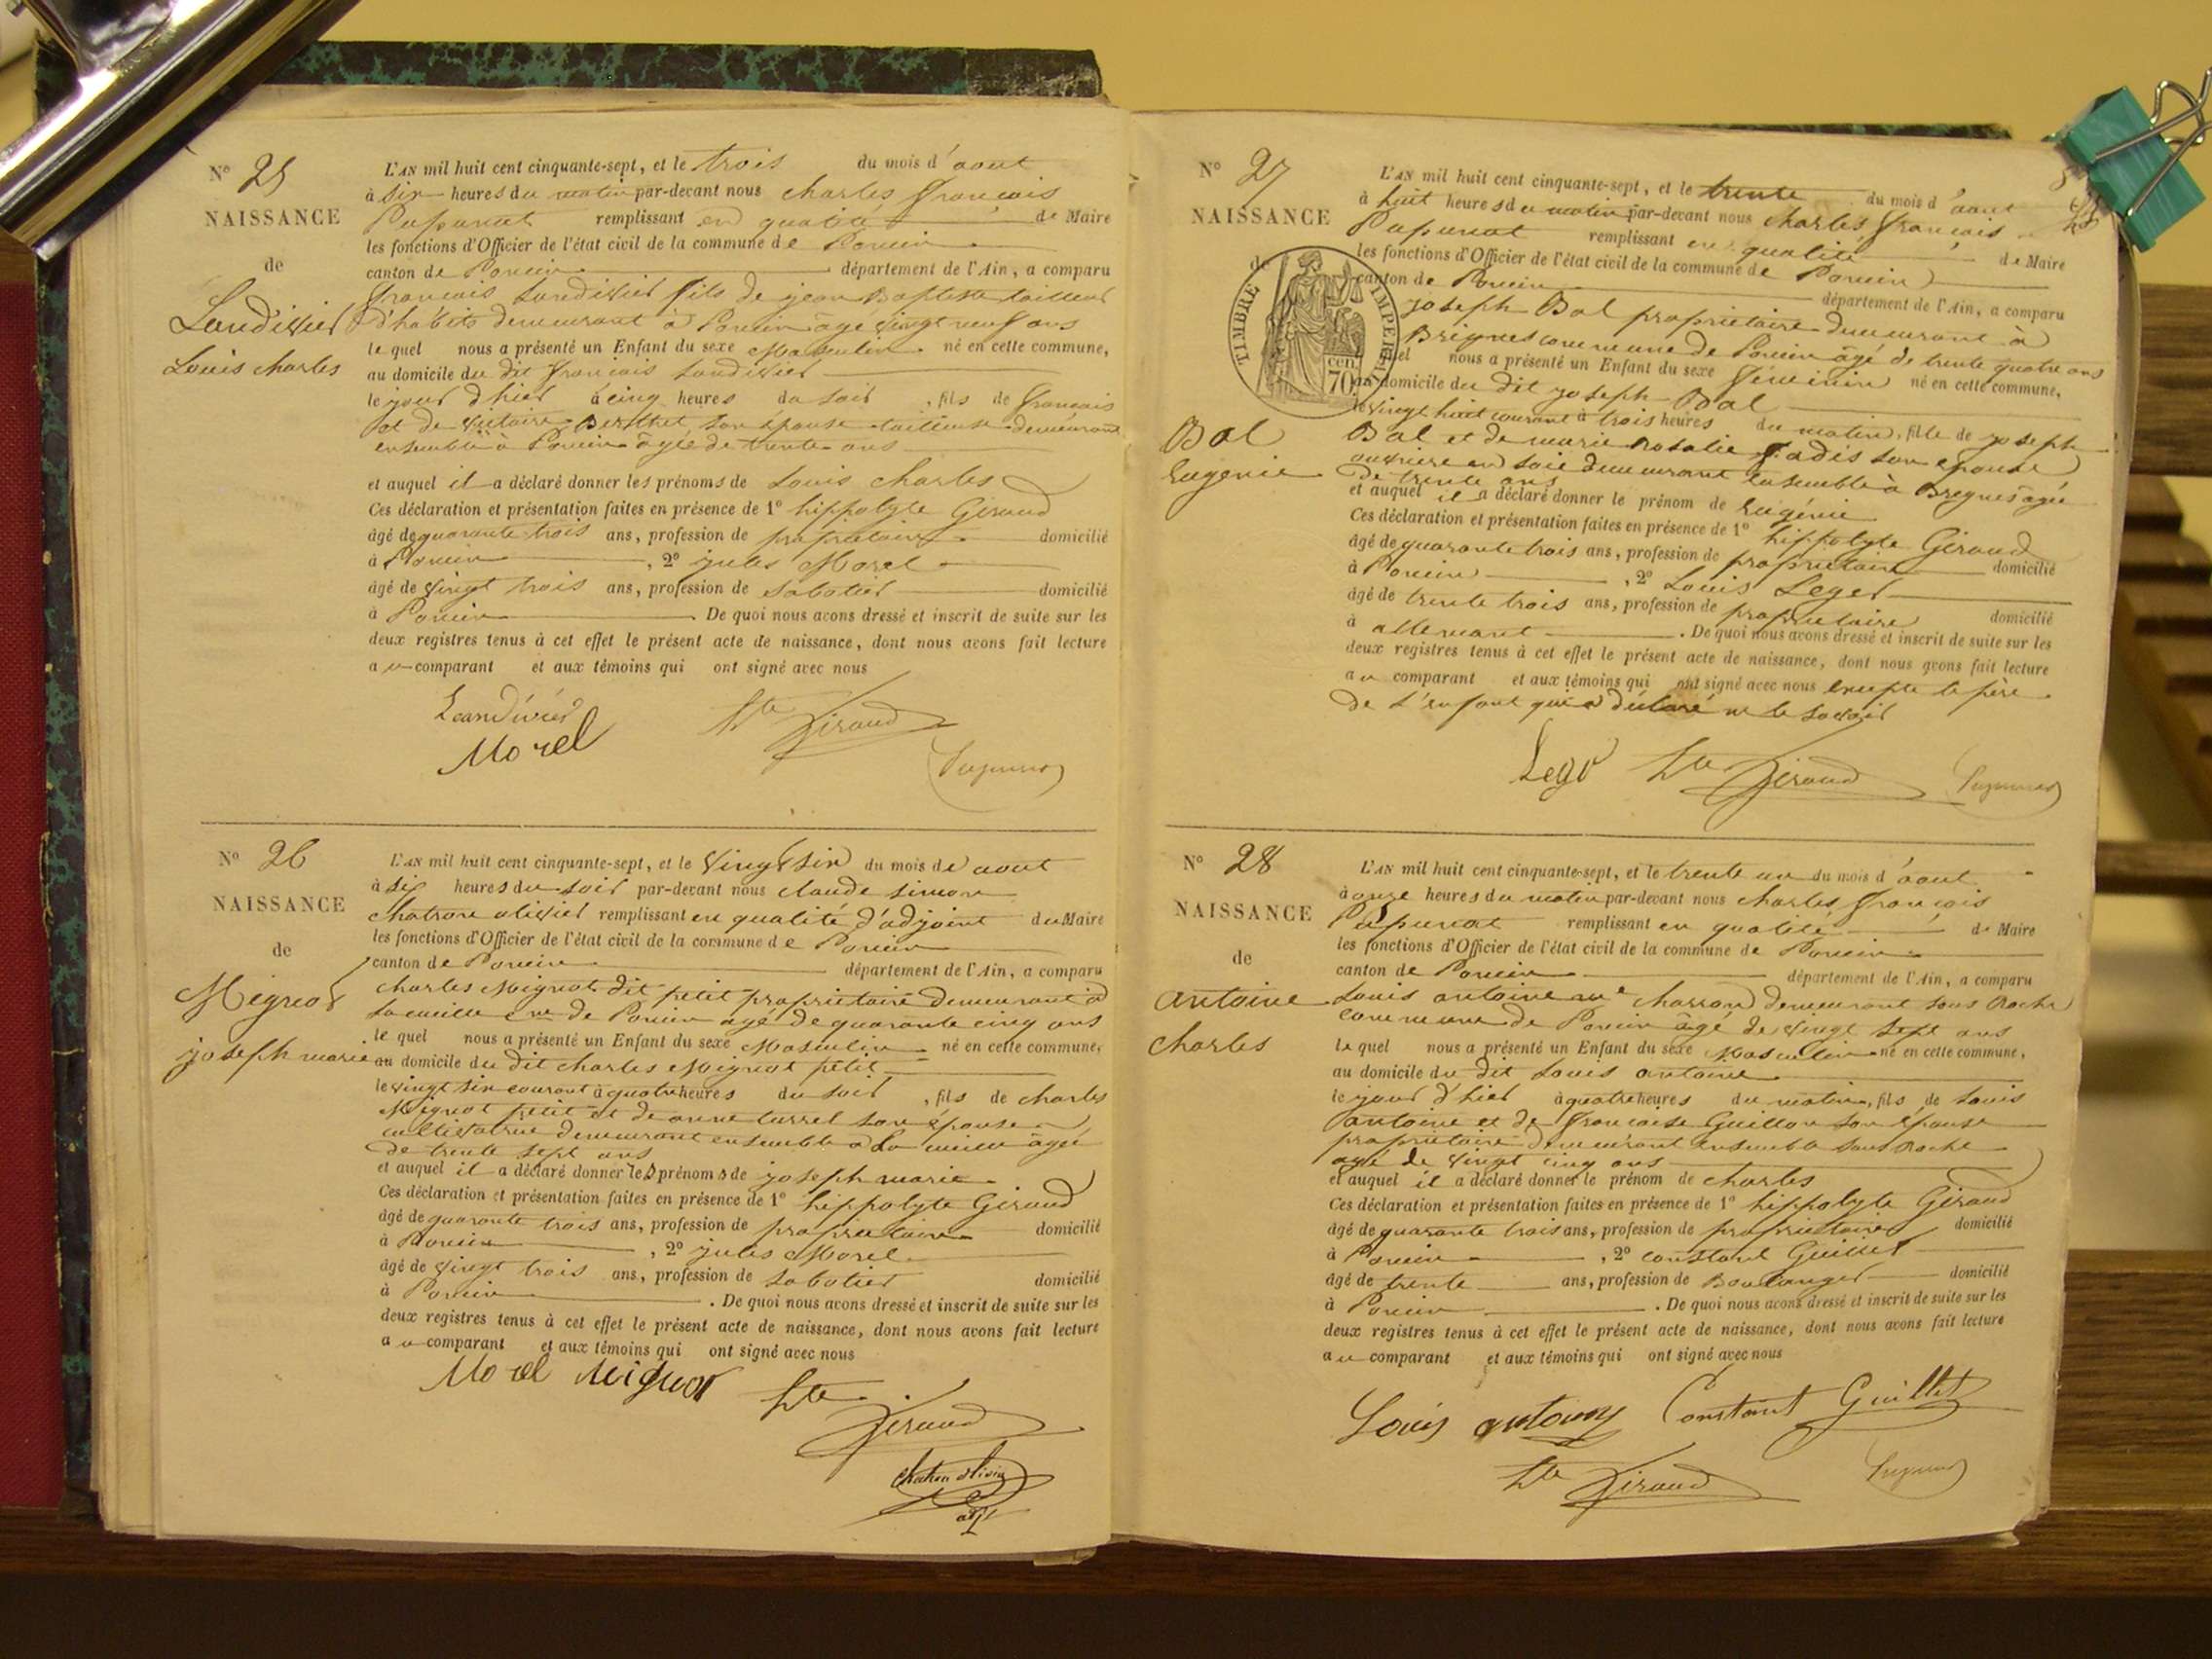 N° 25
NAISSANCE
de
Landivier
Louis charles
L'AN mil huit cent cinquante-sept, et le trois du mois d'aout
à six heures du matin par-devant nous charles françois
Papunat remplissant en qualité de Maire
les fonctions d'Officier de l'état civil de la commune de Poncin
canton de Poncin département de l'Ain, a comparu
françois Landivier fils de jean Baptiste tailleur
d'habits demeurant à Poncin âgé vingt neuf ans
lequel nous a présenté un Enfant du sexe Masculin né en cette commune,
au domicile du dit françois Landivier
le jour d'hier à cinq heures du soir, fils de françois
et de victoire Berthet, son épouse tailleuse demeurant
ensemble à Poncin âgée de trente ans
et auquel il a déclaré donner les prénoms de Louis charles
Ces déclaration et présentation faites en présence de 1° hippolyte Giraud
âgé de quarante trois ans, profession de propriétaire domicilié
à Poncin, 2° jules Morel
âgé de vingt trois ans, profession de sabotier domicilié
à Poncin De quoi nous avons dressé et inscrit de suite sur les
deux registres tenus à cet effet le présent acte de naissance, dont nous avons fait lecture
au comparant et aux témoins qui ont signé avec nous
Landivier
Morel Hte Giraud
Papunat
N° 26
NAISSANCE
de
Mignot
joseph marie
L'AN mil huit cent cinquante-sept, et le vingt six du mois de aout
à six heures du soir par-devant nous claude simon
chatron olivier remplissant en qualité d'adjoint du Maire
les fonctions d'Officier de l'état civil de la commune de Poncin
canton de Poncin département de l'Ain, a comparu
charles Mignot dit petit propriétaire demeurant à
la cueille cne de Poncin âgé de quarante cinq ans
lequel nous a présenté un Enfant du sexe Masculin né en cette commune,
au domicile du dit charles Mignot petit
le vingt six courant à quatre heures du soir, fils de charles
Mignot petit et de anne turrel son épouse
cultivatrice demeurant ensemble à la âgée
de trente sept ans
et auquel il a déclaré donner les prénoms de joseph marie
Ces déclaration et présentation faites en présence de 1° hippolyte Giraud
âgé de quarante trois ans, profession de propriétaire domicilié
à Poncin, 2° jules Morel
âgé de vingt trois ans, profession de sabotier domicilié
à Poncin. De quoi nous avons dressé et inscrit de suite sur les
deux registres tenus à cet effet le présent acte de naissance, dont nous avons fait lecture
au comparant et aux témoins qui ont signé avec nous
Morel Mignot Hte Giraud
chatron olivier
adjt
N° 27
NAISSANCE
de
TIMBRE IMPERIAL
70 cen
Bal
Eugenie
L'AN mil huit cent cinquante-sept, et le trente du mois d'aout
à huit heures du matin par-devant nous charles françois
Papunat remplissant en qualité de Maire
les fonctions d'Officier de l'état civil de la commune de Poncin
canton de Poncin département de l'Ain, a comparu
joseph Bal propriétaire demeurant à
Breignes commune de Poncin âgé de trente quatre ans
lequel nous a présenté un Enfant du sexe féminin né en cette commune,
au domicile du dit joseph Bal
le vingt huit courant à trois heures du matin, fille de joseph
Bal et de marie rosalie son épouse
ouvrière en soie demeurant ensemble à Breignes âgée
de trente ans
et auquel il a déclaré donner le prénom de Eugénie
Ces déclaration et présentation faites en présence de 1° hippolyte Giraud
âgé de quarante trois ans, profession de propriétaire domicilié
à Poncin, 2° Louis Leger
âgé de trente trois ans, profession de propriétaire domicilié
à allemant. De quoi nous avons dressé et inscrit de suite sur les
deux registres tenus à cet effet le présent acte de naissance, dont nous avons fait lecture
au comparant et aux témoins qui ont signé avec nous excepté le père
de l'enfant qui a déclaré ne le savoir
Hte Giraud Papunat
N° 28
NAISSANCE
de
antoine
charles
L'AN mil huit cent cinquante-sept, et le trente un du mois d'aout
à onze heures du matin par-devant nous charles françois
Papunat remplissant en qualité de Maire
les fonctions d'Officier de l'état civil de la commune de Poncin
canton de Poncin département de l'Ain, a comparu
Louis antoine charron demeurant sous Roche
commune de Poncin âgé de vingt sept ans
lequel nous a présenté un Enfant du sexe Masculin né en cette commune,
au domicile du dit Louis antoine
le jour d'hier à quatre heures du matin, fils de Louis
antoine et de françoise Guillon son épouse
propriétaire demeurant ensemble sous Roche
agé de vingt cinq ans
et auquel il a déclaré donner le prénom de charles
Ces déclaration et présentation faites en présence de 1° hippolyte Giraud
âgé de quarante trois ans, profession de propriétaire domicilié
à Poncin, 2° constant Guillet
âgé de trente ans, profession de Boulanger domicilié
à Poncin. De quoi nous avons dressé et inscrit de suite sur les
deux registres tenus à cet effet le présent acte de naissance, dont nous avons fait lecture
au comparant et aux témoins qui ont signé avec nous
Louis antoine Constant Guillet
Hte Giraud Papunat